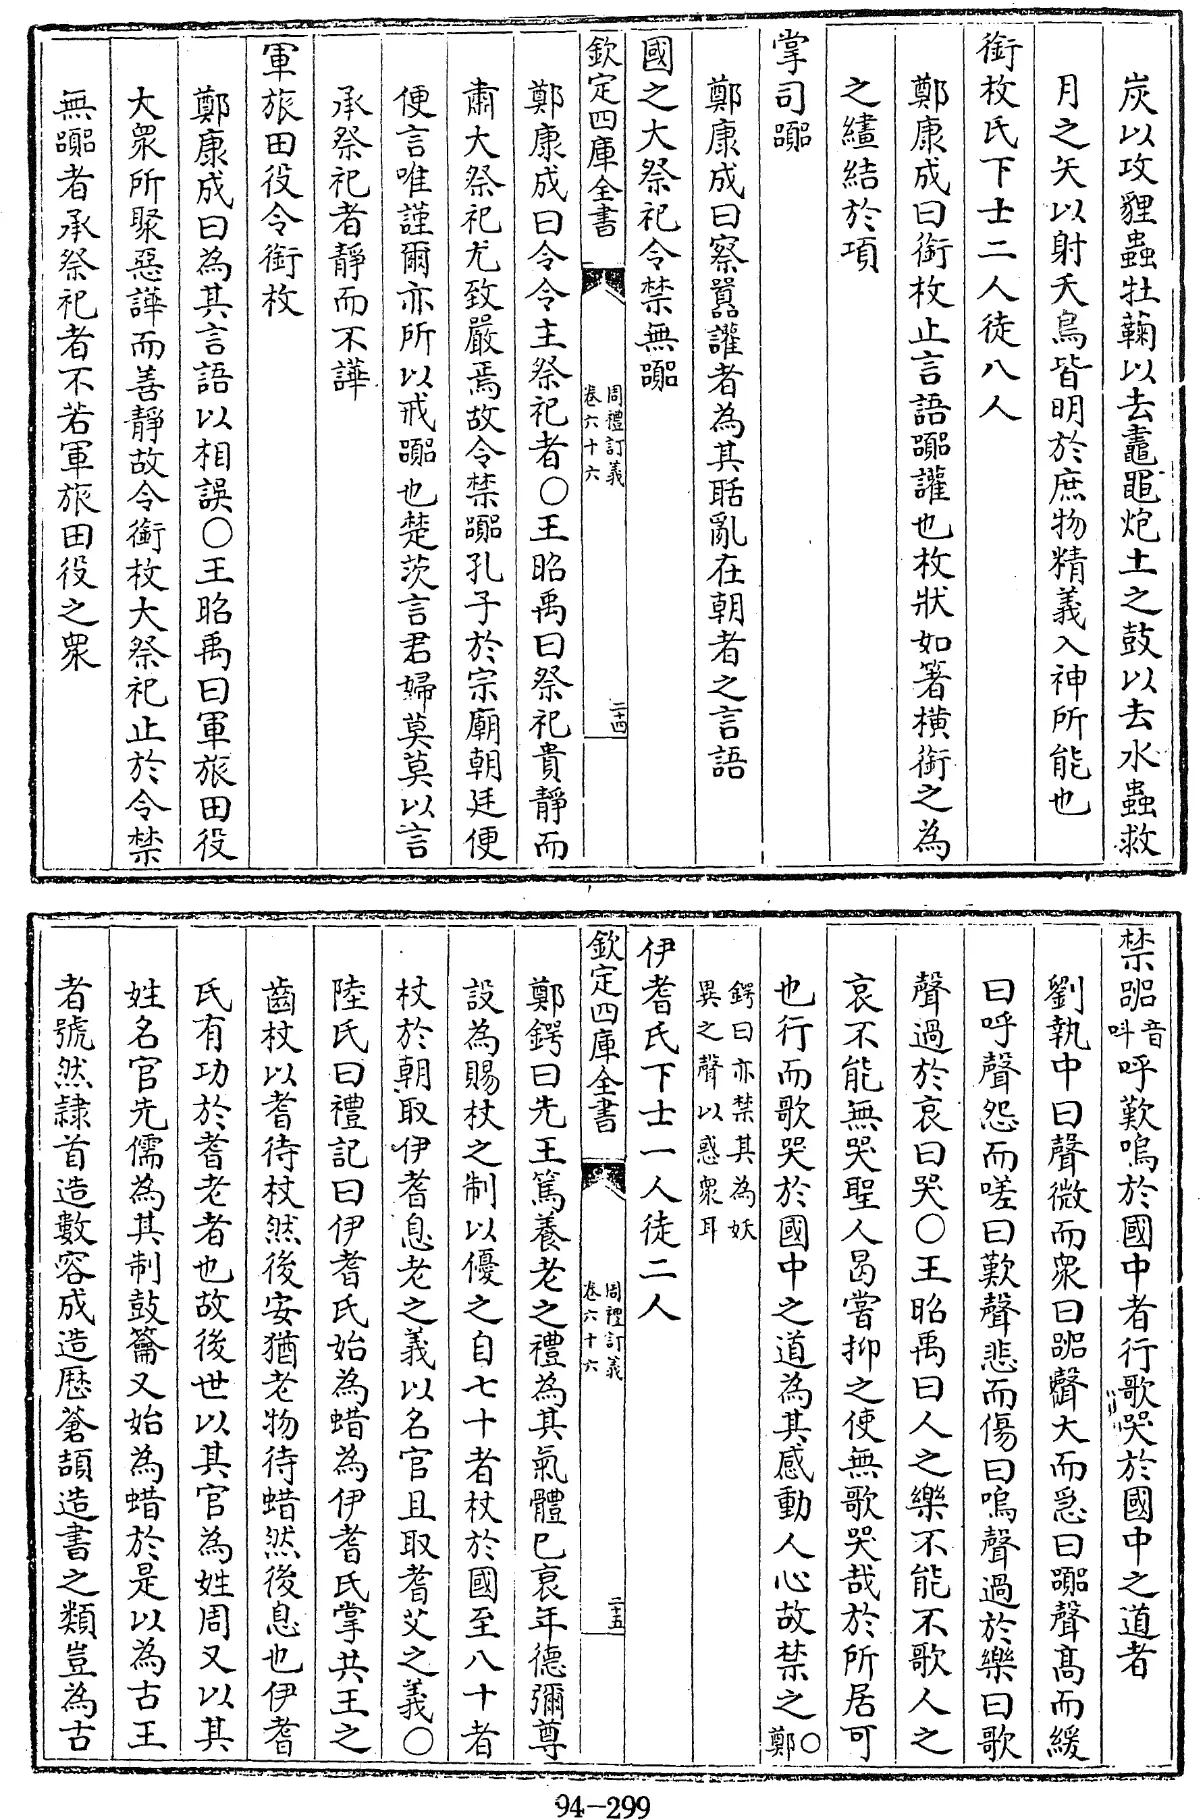 炭以攻貍蟲牡蘜以去鼃黽炮土之鼓以去水蟲救
月之矢以射夭鳥皆明於庶物精義入神所能也
銜枚氏下士二人徒八人
鄭康成曰銜枚止言語嘂讙也枚狀如箸橫銜之為
之繣結於項
掌司嘂
鄭康成曰察嚚讙者為其聒亂在朝者之言語
國之大祭祀令禁無嘂
欽定四庫全書
周禮訂義
卷六十六
二十四
鄭康成曰令令主祭祀者○王昭禹曰祭祀貴靜而
肅大祭祀尤致嚴焉故令禁嘂孔子於宗廟朝廷便
便言唯謹爾亦所以戒嘂也楚茨言君婦莫莫以言
承祭祀者靜而不譁
軍旅田役令銜枚
鄭康成曰為其言語以相誤○王昭禹曰軍旅田役
大衆所聚惡譁而善靜故令銜枚大祭祀止於令禁
無嘂者承祭祀者不若軍旅田役之衆
禁嘂音叫呼歎嗚於國中者行歌哭於國中之道者
劉執中曰聲微而衆曰嘂聲大而急曰嘂聲高而緩
曰呼聲怨而嗟曰歎聲悲而傷曰嗚聲過於樂曰歌
聲過於哀曰哭○王昭禹曰人之樂不能不歌人之
哀不能無哭聖人曷嘗抑之使無歌哭哉於所居可
也行而歌哭於國中之道為其感動人心故禁之○鄭
鍔曰亦禁其為妖
異之聲以惑衆耳
伊耆氏下士一人徒二人
欽定四庫全書
周禮訂義
卷六十六
二十五
鄭鍔曰先王篤養老之禮為其氣體已衰年德彌尊
設為賜杖之制以優之自七十者杖於國至八十者
杖於朝取伊耆息老之義以名官且取耆艾之義○
陸氏曰禮記曰伊耆氏始為蜡為伊耆氏掌共王之
齒杖以耆待杖然後安猶老物待蜡然後息也伊耆
氏有功於耆老者也故後世以其官為姓周又以其
姓名官先儒為其制鼓籥又始為蜡於是以為古王
者號然隸首造數容成造歷蒼頡造書之類豈為古
94-299